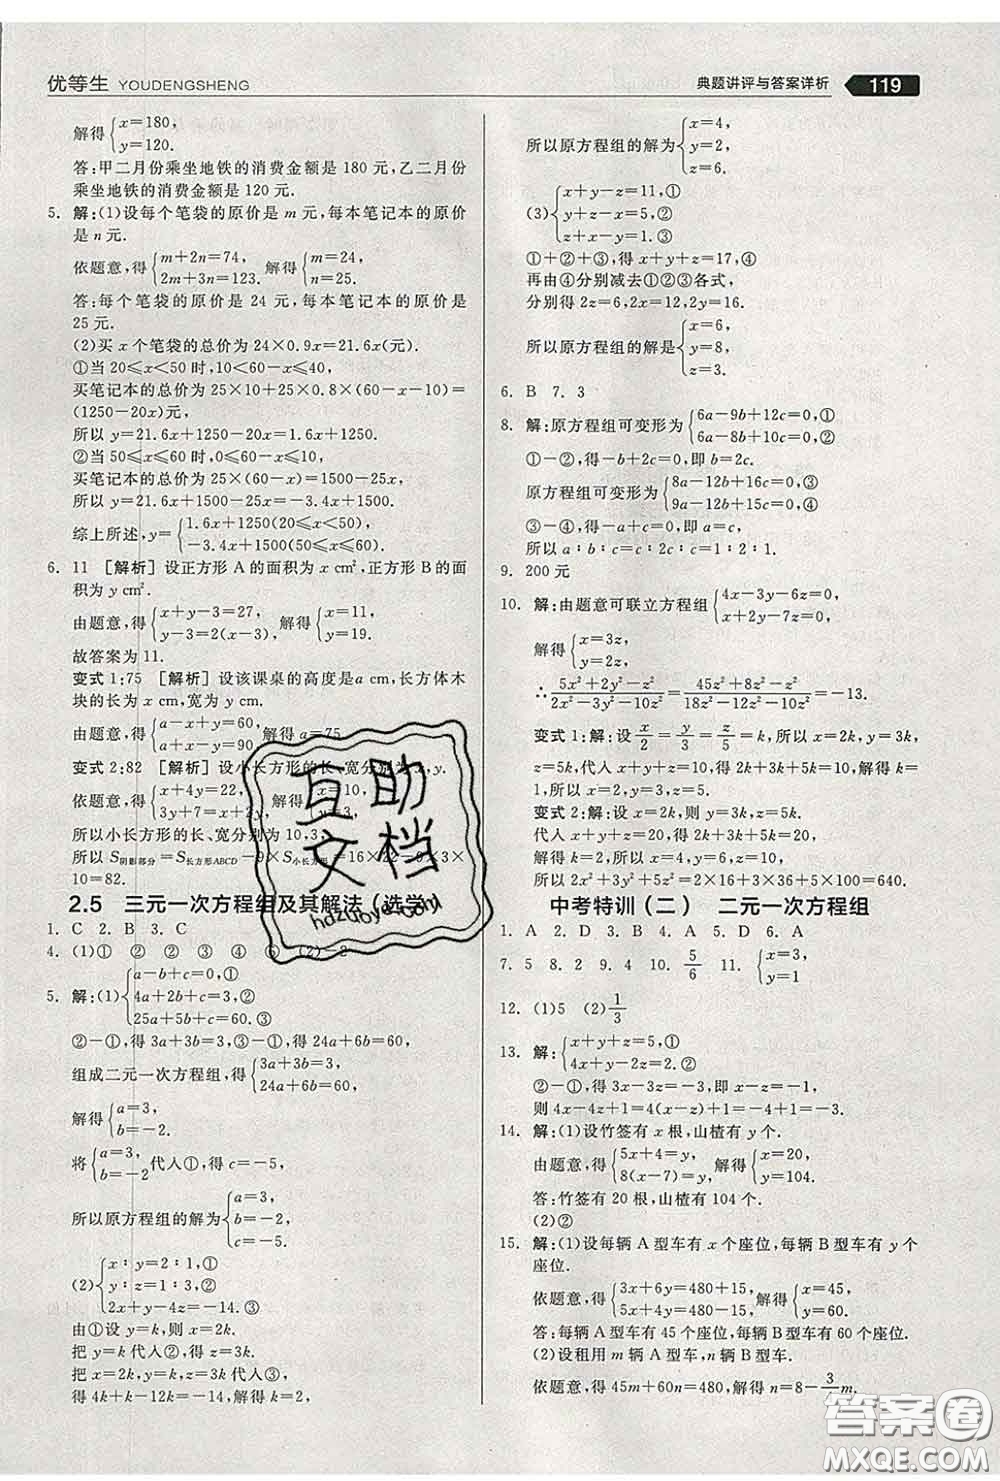 优等生 YOUDENGSHENG
典题讲评与答案详析 119
解得{x=180, y=120.
答:甲二月份乘坐地铁的消费金额是 180 元,乙二月份
乘坐地铁的消费金额是 120 元.
5. 解:(1)设每个笔袋的原价是 m 元,每本笔记本的原价
是 n 元.
依题意,得{m+2n=74, 2m+3n=123. 解得{m=24, n=25.
答:每个笔袋的原价是 24 元,每本笔记本的原价是
25 元.
(2)买 x 个笔袋的总价为 24×0.9x=21.6x(元).
①当 20≤x<50 时,10<60-x≤40,
买笔记本的总价为 25×10+25×0.8×(60-x-10)=
(1250-20x)元,
所以 y=21.6x+1250-20x=1.6x+1250.
②当 50≤x≤60 时,0≤60-x≤10,
买笔记本的总价为 25×(60-x)=1500-25x(元),
所以 y=21.6x+1500-25x=-3.4x+1500.
综上所述,y={1.6x+1250(20≤x<50), -3.4x+1500(50≤x≤60).
6. 11 [解析] 设正方形 A 的面积为 x cm²,正方形 B 的面
积为 y cm².
由题意,得{x+y-3=27, y-3=2(x-3). 解得{x=11, y=19.
故答案为 11.
变式 1:75 [解析] 设该课桌的高度是a cm,长方体木
块的长为 x cm,宽为 y cm.
由题意,得{a-x+y=60, a+x-y=90. 解得 a=75
变式 2:82 [解析] 设小长方形的长、宽分别为 x,y.
依题意,得{x+4y=22, 3y+7=x+y. 解得{x=10, y=3.
所以小长方形的长、宽分别为 10,3,
所以 S阴影部分=S长方形ABCD-9×S小长方形=16×22-9×3×
10=82.
2.5 三元一次方程组及其解法(选学)
1. C 2. B 3. C
4. (1)① ② ② ③ ④ ⑥ (2)-2
5. 解:(1){a-b+c=0,① 4a+2b+c=0,② 25a+5b+c=60.③
②-①,得 3a+3b=3,③-①,得 24a+6b=60.
组成二元一次方程组,得{3a+3b=3, 24a+6b=60.
解得{a=3, b=-2.
将{a=3, b=-2代人①,得 c=-5.
所以原方程组的解为{a=3, b=-2, c=-5.
由①设 y=k,则 x=2k.
把 y=k 代人②,得 z=3k.
得 4k+k-12k=-14,解得 k=2.
所以原方程组的解为{x=4, y=2, z=6.
(3){x+y-z=11,① y+z-x=5,② z+x-y=1.③
①+②+③,得 x+y+z=17,④
再由④分别减去①②③各式,
分别得 2z=6,2x=12,2y=16.
所以原方程组的解是{x=6, y=8, z=3.
6. B 7. 3
8. 解:原方程组可变形为{6a-9b+12c=0,① 6a-8b+10c=0,②
①-②,得-b+2c=0,即 b=2c.
原方程组可变形为{8a-12b+16c=0,③ 9a-12b+15c=0.④
③-④,得-a+c=0,即 a=c,
所以 a:b:c=c:2c:c=1:2:1.
9. 200 元
10. 解:由题意可联立方程组{4x-3y-6z=0, x+2y-7z=0.
解得{x=3z, y=2z.
∴(5x²+2y²-z²)/(2x²-3y²-10z²)=(45z²+8z²-z²)/(18z²-12z²-10z²)=52/(-4)=-13.
变式 1:解:设 x/2=y/3=z/5=k,则 x=2k,y=3k,
z=5k,代人 x+y+z=10,得 2k+3k+5k=10,解得 k=
1,所以 x=2,y=3,z=5.
变式 2:解:设 x=2k,y=3k,则 z=5k.
代人 x+y+z=40,得 2k+3k+5k=40,
解得 k=4.所以 x=8,y=12,z=20.
所以 2x²+2y²+z²=2×16+3×36+5×100=640.
中考特训(二) 二元一次方程组
1. A 2. D 3. B 4. A 5. D 6. A
7. 5 8. 2 9. 4 10. 5/6 11. {x=3, y=1
12. (1)5 (2)1/3
13. 解:{x+y+z=5,① 4x+y-2z=2.②
②-①,得 3x-3z=-3,所以 x-z=-1,
则 4x-4z+1=4(x-z)+1=-4+1=-3.
14. 解:(1)设竹签有 x 根,山楂有 y 个.
由题意,得{5x+4=y, 8(x-7)=y. 解得{x=20, y=104.
答:竹签有 20 根,山楂有 104 个.
(2)②
15. 解:(1)设每辆 A 型车有 x 个座位,每辆 B 型车有 y 个
座位.
依题意,得{3x+6y=480+15, 5x+4y=480-15. 解得{x=45, y=60.
答:每辆 A 型车有 45 个座位,每辆 B 型车有 60 个座位.
(2)设租用 m 辆 A 型车,n 辆 B 型车.
互助
文档
hdzuoye.com
答案圈
MXQE.COM